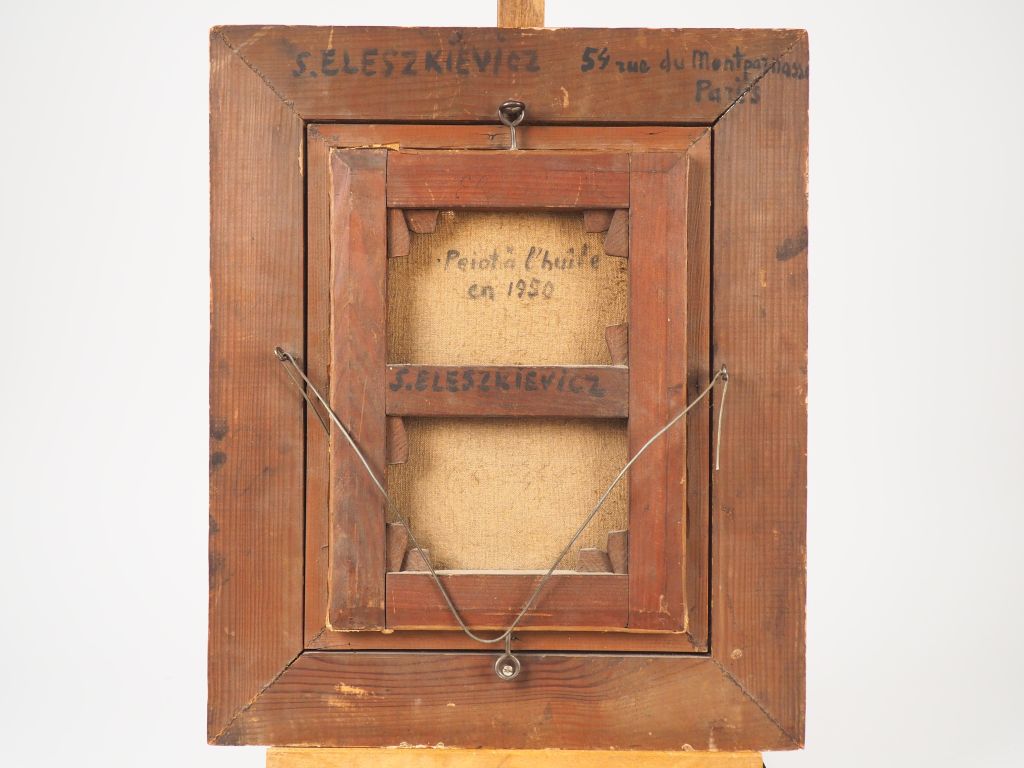 S. ELESZKIEVICZ 54 rue du Montparnasse
Paris
Peiot à l'huile
en 1950
S. ELESZKIEVICZ